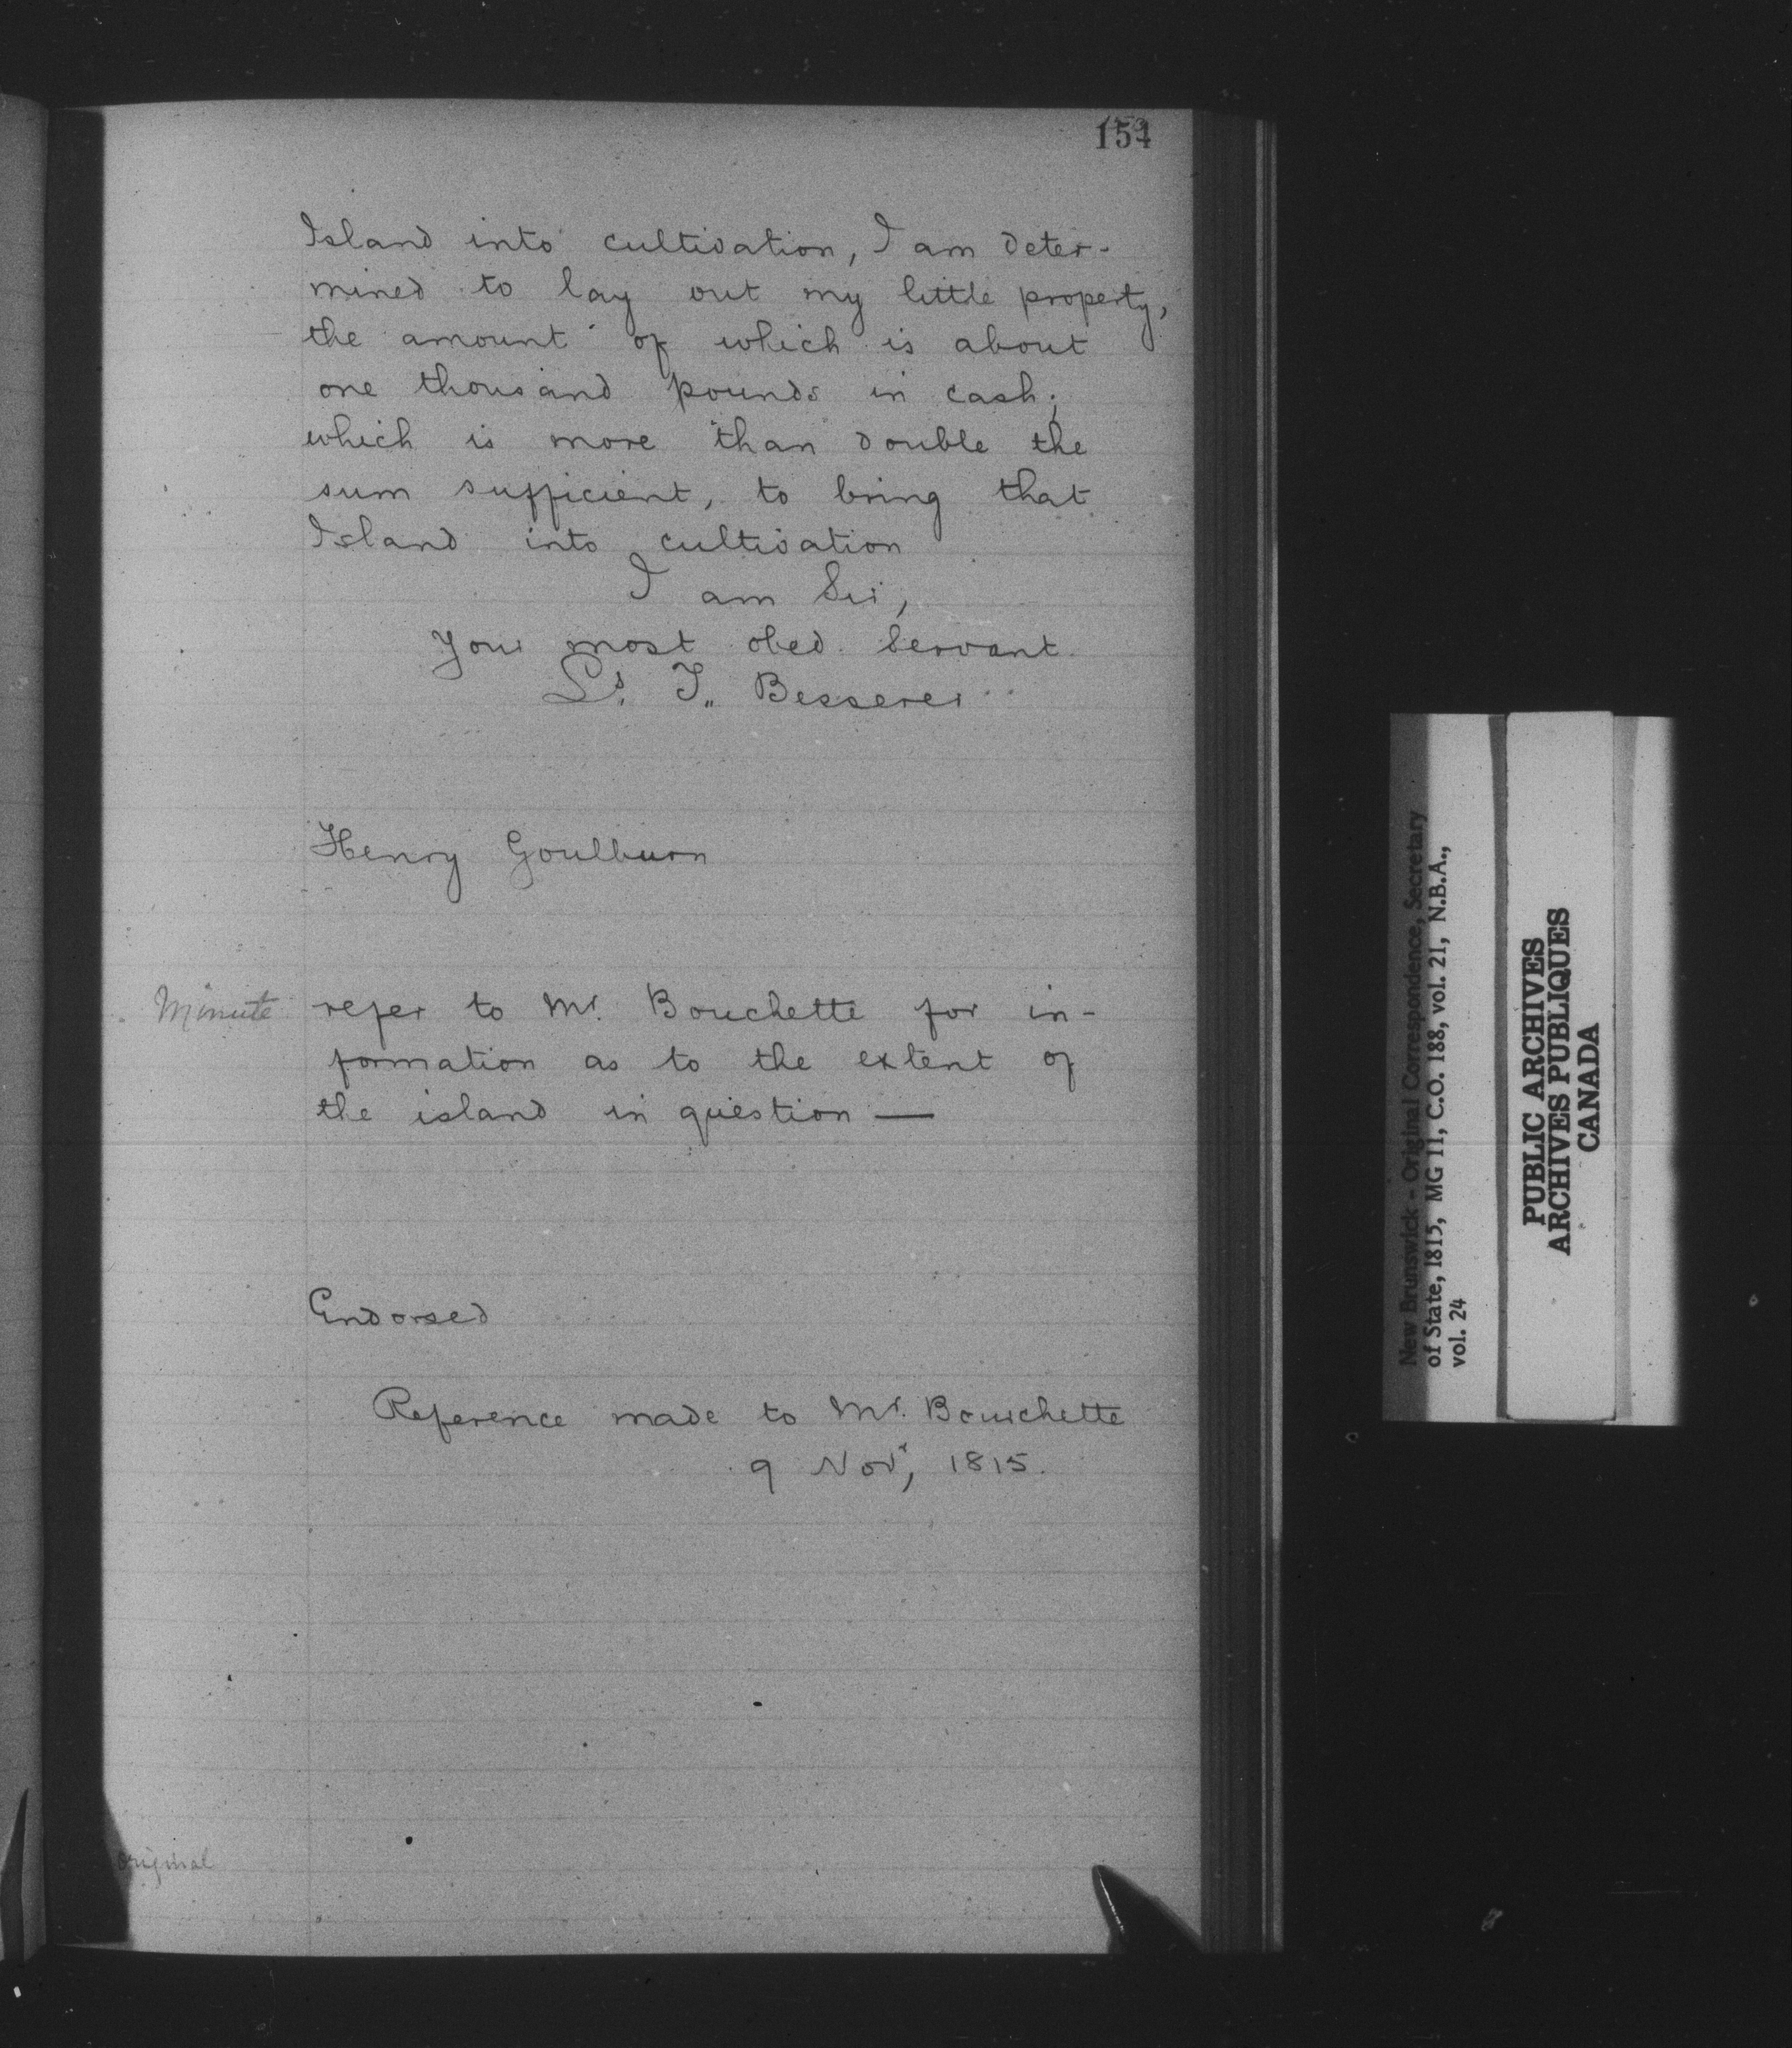 154
Island into cultivation, I am deter-
mined to lay out my little property,
the amount of which is about
one thousand pounds in cash;
which is more than double the
sum sufficient, to bring that
Island into cultivation
I am Sir,
Your most obed. Servant
Ls. T,, Besserer
Henry Goulburn
Minute
refer to Mr. Bouchette for in-
formation as to the extent of
the island in question —
Endorsed
Reference made to Mr. Bouchette
9 Novr, 1815.
original
New Brunswick - Original Correspondence, Secretary
of State, 1815, MG 11, C.O. 188, vol. 21, N.B.A.,
vol. 24
PUBLIC ARCHIVES
ARCHIVES PUBLIQUES
CANADA